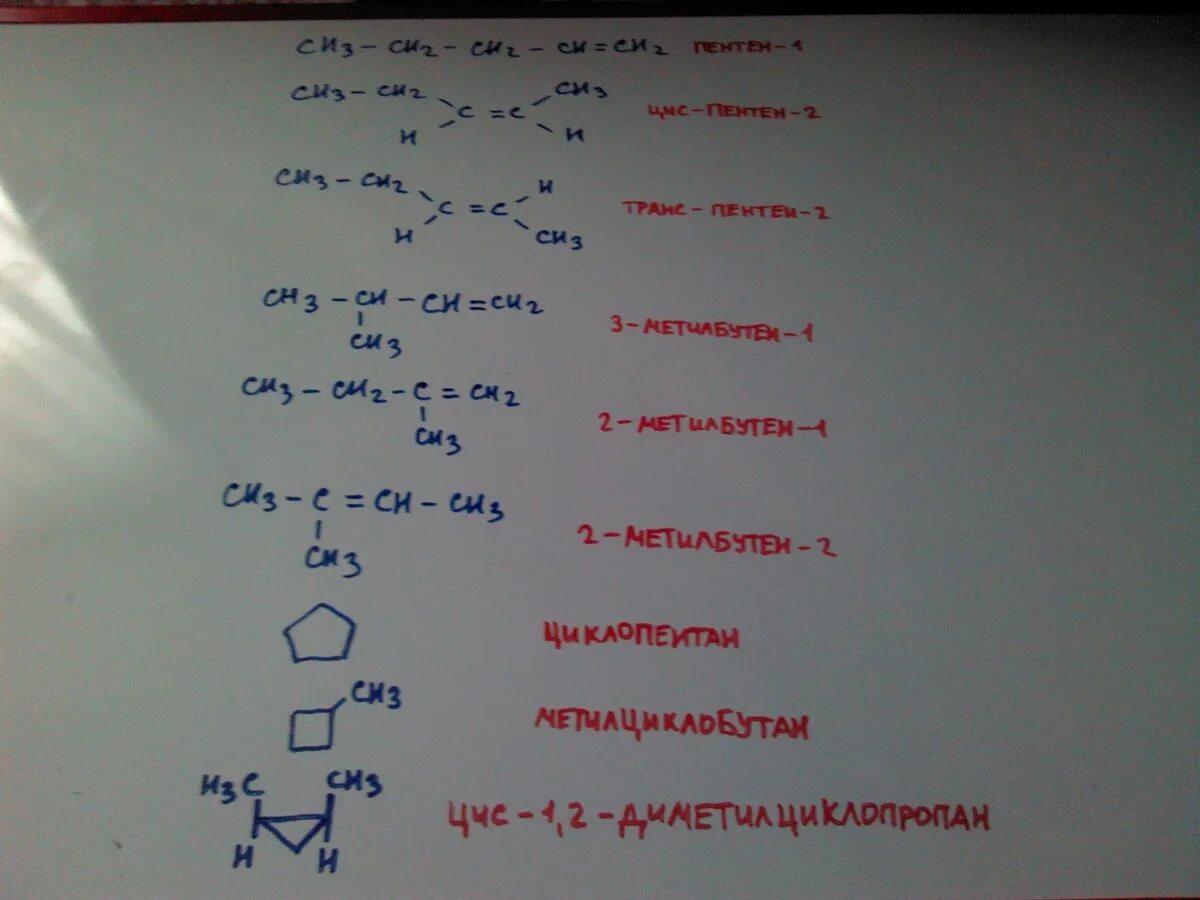 CH3 – CH2 – CH2 – CH = CH2 ПЕНТЕН-1
CH3 – CH2 CH3
C = C ЦИС-ПЕНТЕН-2
H H
CH3 – CH2 H
C = C ТРАНС-ПЕНТЕН-2
H CH3
CH3 – CH – CH = CH2
CH3 3-МЕТИЛБУТЕН-1
CH3 – CH2 – C = CH2
CH3 2-МЕТИЛБУТЕН-1
CH3 – C = CH – CH3
CH3 2-МЕТИЛБУТЕН-2
ЦИКЛОПЕНТАН
CH3
МЕТИЛЦИКЛОБУТАН
H3C CH3
ЦИС-1,2-ДИМЕТИЛЦИКЛОПРОПАН
H H